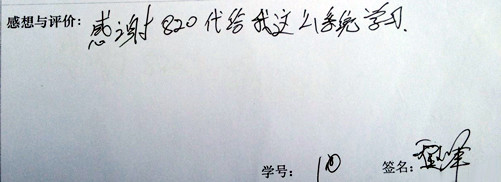 感想与评价：感谢820代给我这么系统学习.
学号：10 签名：